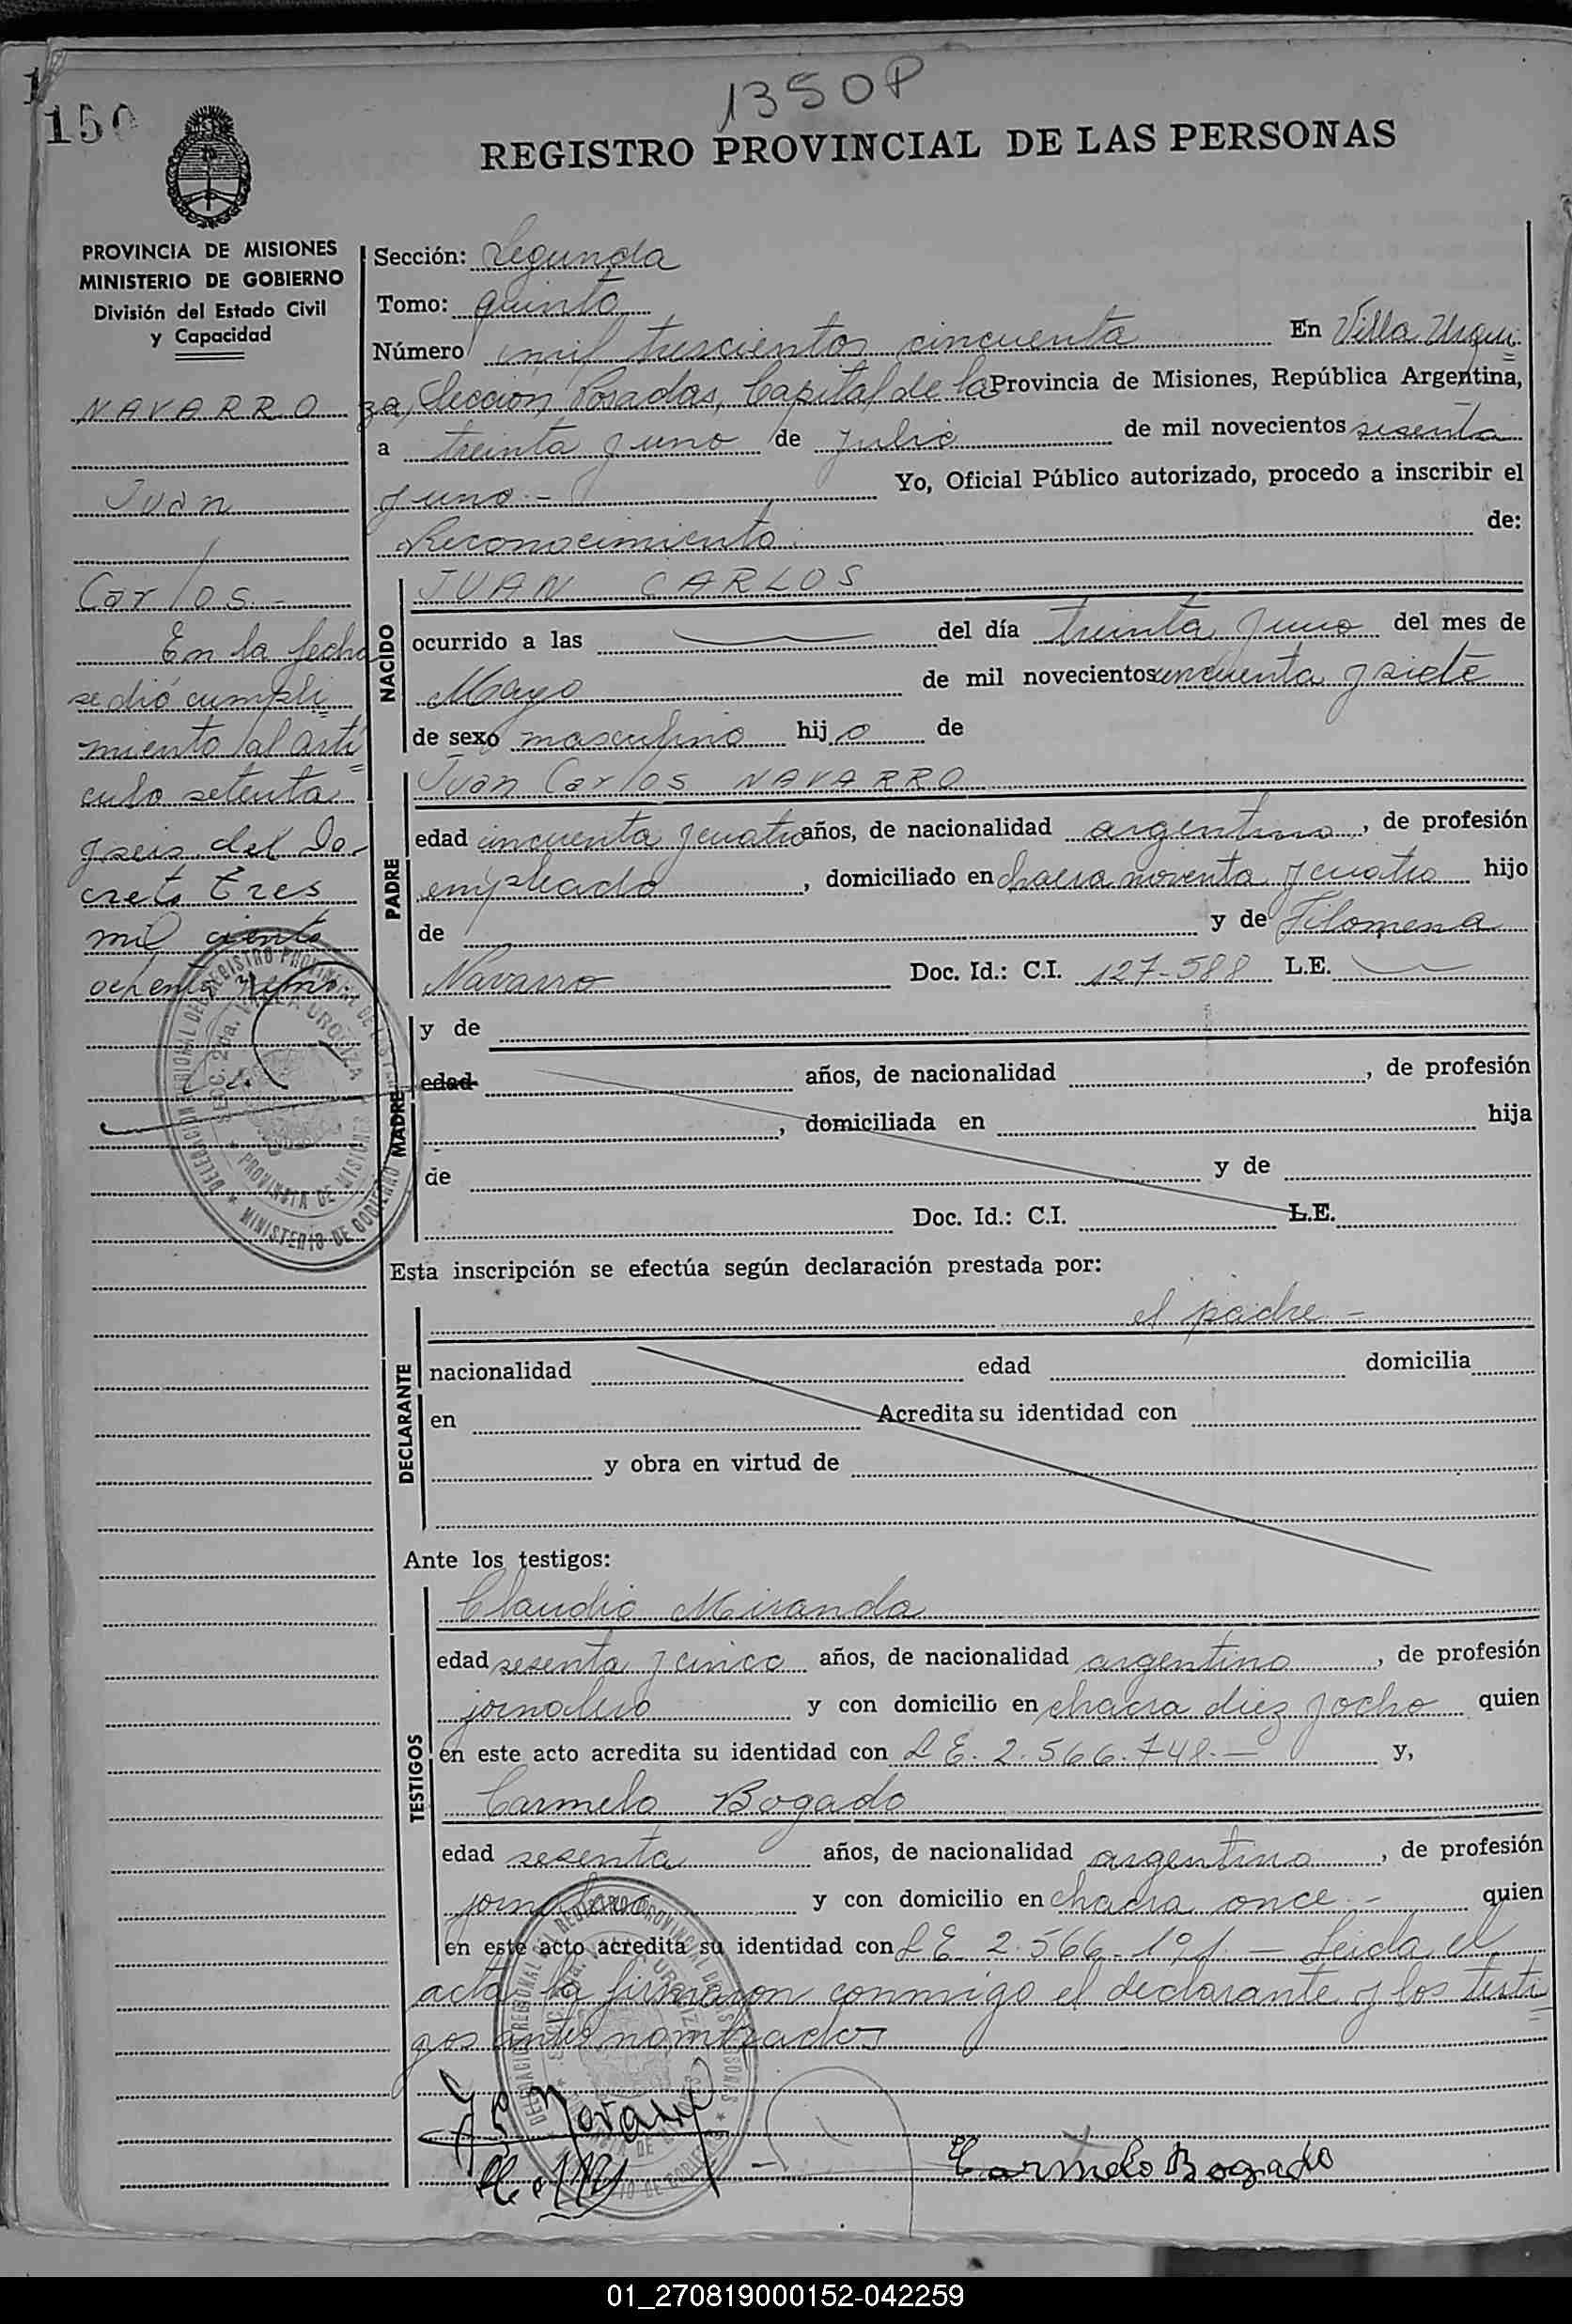 1350P
150
REGISTRO PROVINCIAL DE LAS PERSONAS
PROVINCIA DE MISIONES
MINISTERIO DE GOBIERNO
División del Estado Civil
y Capacidad
NAVARRO
Juan
Carlos.-
En la fecha
se dió cumpli
miento al arti
culo setenta
y seis del De-
creto tres
mil ciento
ochenta
Sección: Segunda
Tomo: quinto
Número mil trescientos cincuenta En Villa Urqui
za, Sección Posadas, Capital de la Provincia de Misiones, República Argentina,
a treinta y uno de julio de mil novecientos sesenta
y uno.- Yo, Oficial Público autorizado, procedo a inscribir el
Reconocimiento de:
NACIDO
JUAN CARLOS
ocurrido a las del día treinta y uno del mes de
Mayo de mil novecientos cincuenta y siete
de sexo masculino hijo de
PADRE
Juan Carlos NAVARRO
edad cincuenta y cuatro años, de nacionalidad argentino, de profesión
empleado, domiciliado en chacra noventa y cuatro hijo
de y de Filomena
Navarro Doc. Id.: C.I. 127-588 L.E.
MADRE
y de
edad años, de nacionalidad , de profesión
, domiciliada en hija
de y de
Doc. Id.: C.I. L.E.
Esta inscripción se efectúa según declaración prestada por:
DECLARANTE
el padre -
nacionalidad edad domicilia
en Acredita su identidad con
y obra en virtud de
Ante los testigos:
TESTIGOS
Claudio Miranda
edad sesenta y cinco años, de nacionalidad argentino, de profesión
jornalero y con domicilio en chacra diez y ocho quien
en este acto acredita su identidad con L E. 2.566.748.- y,
Carmelo Bogado
edad sesenta años, de nacionalidad argentino, de profesión
jornalero y con domicilio en chacra once.- quien
en este acto acredita su identidad con L E. 2.566.191.- Leida el
acta la firmaron conmigo el declarante y los testi
gos antes nombrados
Carmelo Bogado
DELEGACION REGIONAL DEL REGISTRO PROVINCIAL DE LAS PERSONAS
SECC. 2da. VILLA URQUIZA
PROVINCIA DE MISIONES
MINISTERIO DE GOBIERNO
01_270819000152-042259